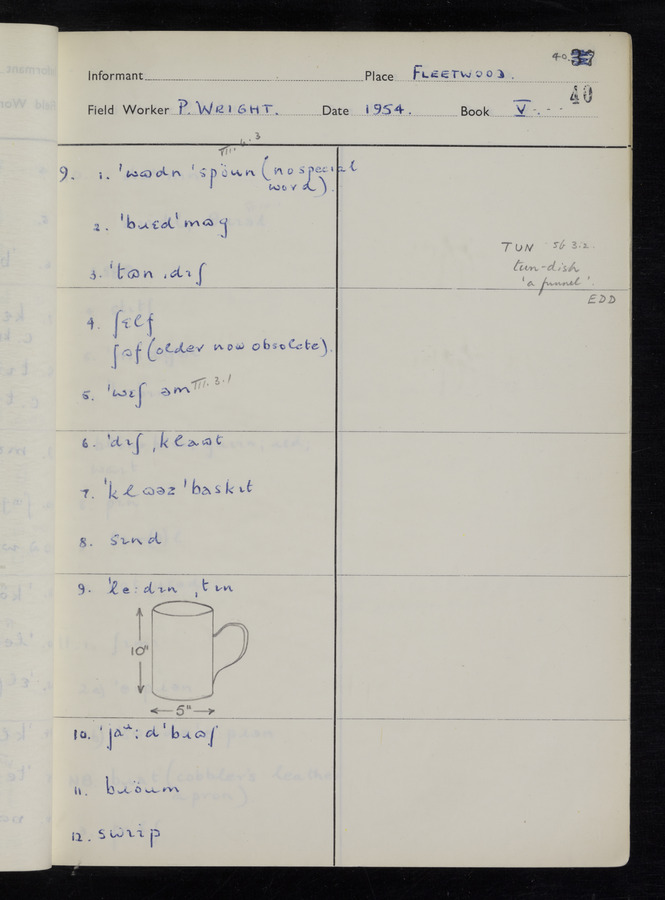 40.
Informant Place FLEETWOOD.
40
Field Worker P. WRIGHT. Date 1954. Book V.
9. 1. ˈwɷdn ˈspöun (no special
word).
2. ˈbɹɛd ˈmɷg
TUN
3. ˈtɷn ˌdɪʃ
tun-dish
'a funnel'.
EDD
4. ʃɛlf
ʃəf (older now obsolete).
5. ˈwɛʃ əm III.3.1
6. ˈdɪʃ ˌklaɷt
7. ˈklɷəz ˈbaskɪt
8. sɪnd
9. ˈle:dɪn ˌtɪn
10"
5"
10. ˈja:d ˈbɹɷʃ
11. bɹöum
12. swɪip